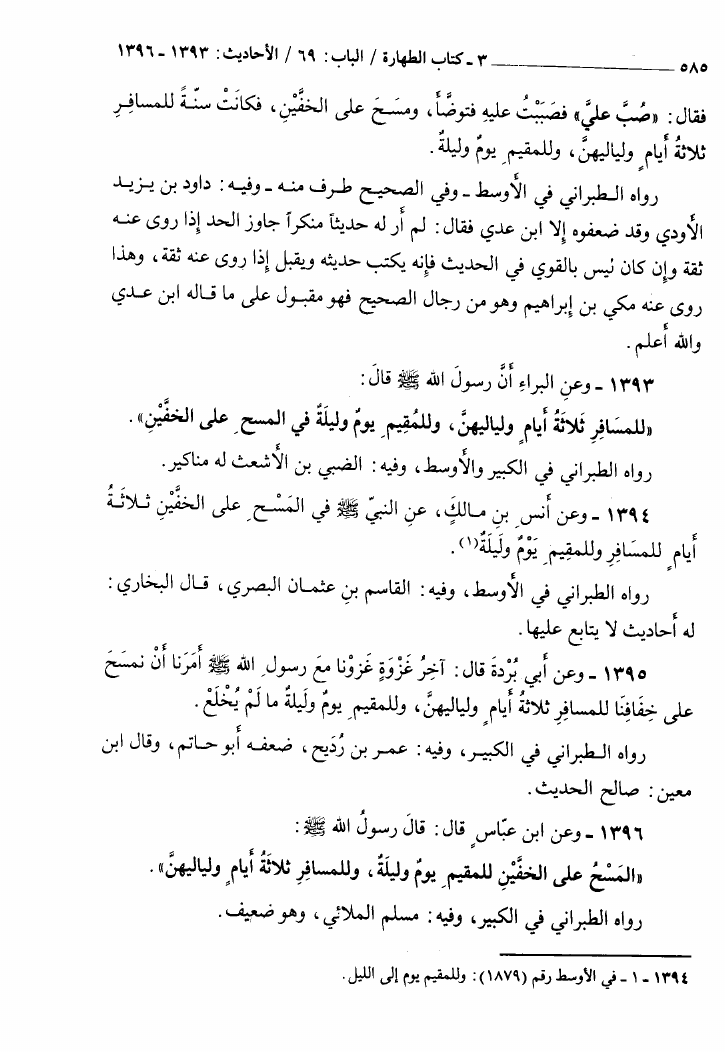 ٣ - كتاب الطهارة / الباب: ٦٩ / الأحاديث: ١٣٩٣ - ١٣٩٦ ـــــــــــــــــــــ ٥٨٥
فقال: «صُبَّ عليَّ» فصَبَبْتُ عليهِ فتوضَّأَ، ومسَحَ على الخفَّيْنِ، فكانَتْ سنّةً للمسافِرِ
ثلاثةُ أيامٍ ولياليهنَّ، وللمقيمِ يومٌ وليلةٌ.
رواه الطبراني في الأوسط - وفي الصحيح طرف منه - وفيه: داود بن يزيد
الأودي وقد ضعفوه إلا ابن عدي فقال: لم أر له حديثاً منكراً جاوز الحد إذا روى عنه
ثقة وإن كان ليس بالقوي في الحديث فإنه يكتب حديثه ويقبل إذا روى عنه ثقة، وهذا
روى عنه مكي بن إبراهيم وهو من رجال الصحيح فهو مقبول على ما قاله ابن عدي
والله أعلم.
١٣٩٣ - وعنِ البراءِ أنَّ رسولَ الله ﷺ قالَ:
«للمسَافِرِ ثَلاثَةُ أيامٍ ولياليهنَّ، وللمُقيمِ يومٌ وليلَةٌ في المسحِ على الخفَّيْنِ».
رواه الطبراني في الكبير والأوسط، وفيه: الضبي بن الأشعث له مناكير.
١٣٩٤ - وعن أنسِ بنِ مالكٍ، عنِ النبيّ ﷺ في المَسْحِ على الخفَّيْنِ ثلاثةُ
أيامٍ للمسَافِرِ وللمقِيمِ يَوْمٌ ولَيلَةٌ(١).
رواه الطبراني في الأوسط، وفيه: القاسم بنِ عثمان البصري، قال البخاري:
له أحاديث لا يتابع عليها.
١٣٩٥ - وعن أبي بُرْدةَ قال: آخِرُ غَزْوَةٍ غَزوْنا معَ رسولِ الله ﷺ أمَرَنا أنْ نمسَحَ
على خِفَافِنَا للمسافِرِ ثلاثةُ أيامٍ ولياليهنَّ، وللمقيمِ يومٌ ولَيلةٌ ما لَمْ يُخْلَعْ.
رواه الطبراني في الكبير، وفيه: عمر بن رُدَيح، ضعفه أبو حاتم، وقال ابن
معين: صالح الحديث.
١٣٩٦ - وعن ابن عبّاسٍ قال: قالَ رسولُ الله ﷺ:
«المَسْحُ على الخفَّيْنِ للمقيمِ يومٌ وليلةٌ، وللمسافرِ ثلاثةُ أيامٍ ولياليهنَّ».
رواه الطبراني في الكبير، وفيه: مسلم الملائي، وهو ضعيف.
١٣٩٤ - ١ - في الأوسط رقم (١٨٧٩): وللمقيم يوم إلى الليل.